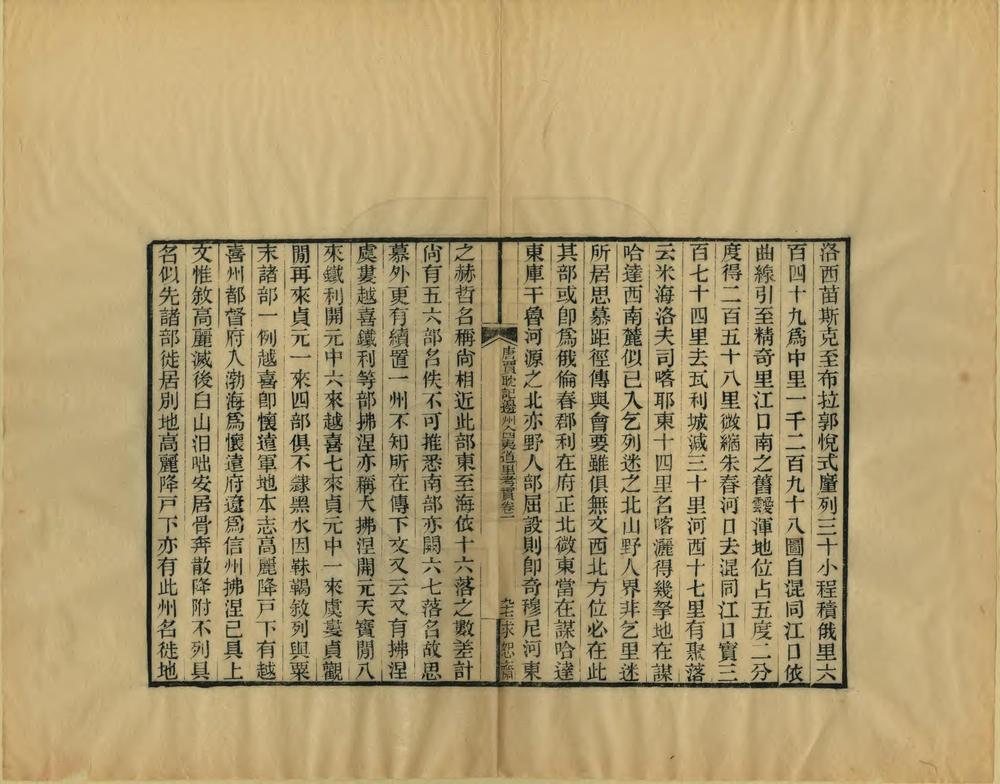 洛西苗斯克至布拉郭悅式廛列三十小程積俄里六
百四十九爲中里一千二百九十八圖自混同江口依
曲線引至精奇里江口南之舊璦渾地位占五度二分
度得二百五十八里微縮朱春河口去混同江口實三
百七十四里去瓦利城減三十里河西十七里有聚落
云米海洛夫司喀耶東十四里名喀灑得幾拏地在謀
哈達西南麓似已入乞列迷之北山野人界非乞里迷
所居思慕距徑傳與會要雖俱無文西北方位必在此
其部或卽爲俄倫春郡利在府正北微東當在謀哈達
東庫干魯河源之北亦野人部屈設則卽奇穆尼河東
唐賈耽記邊州入四夷道里考實卷二
求恕齋
之赫哲名稱尙相近此部東至海依十六落之數差計
尙有五六部名佚不可推悉南部亦闕六七落名故思
慕外更有續置一州不知所在傳下文又云又有拂涅
虞婁越喜鐵利等部拂涅亦稱大拂涅開元天寶閒八
來鐵利開元中六來越喜七來貞元中一來虞婁貞觀
閒再來貞元一來四部俱不隸黑水因靺鞨敘列與粟
末諸部一例越喜卽懷遠軍地本志高麗降戸下有越
喜州都督府入渤海爲懷遠府遼爲信州拂涅已具上
文惟敘高麗滅後白山汨咄安居骨奔散降附不列具
名似先諸部徙居別地高麗降戸下亦有此州名徙地